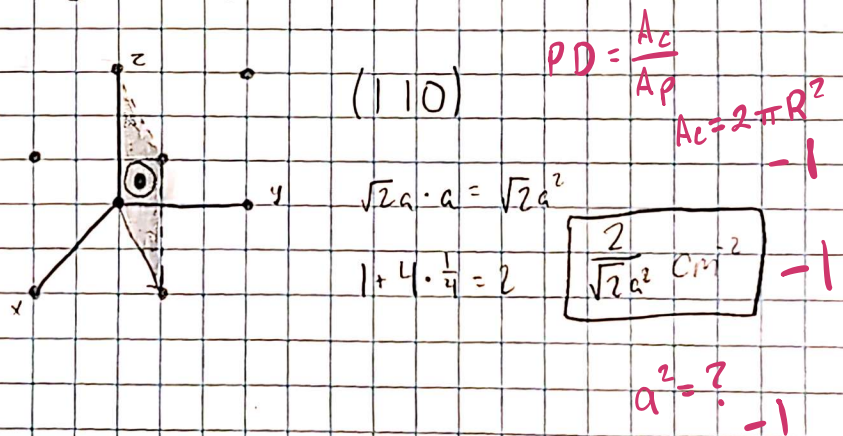 z
y
x
(110)
√2a · a = √2a²
1 + 4 · 1/4 = 2
2/√2a² cm⁻²
PD = Ac/Ap
Ac = 2πR²
-1
-1
a² = ?
-1